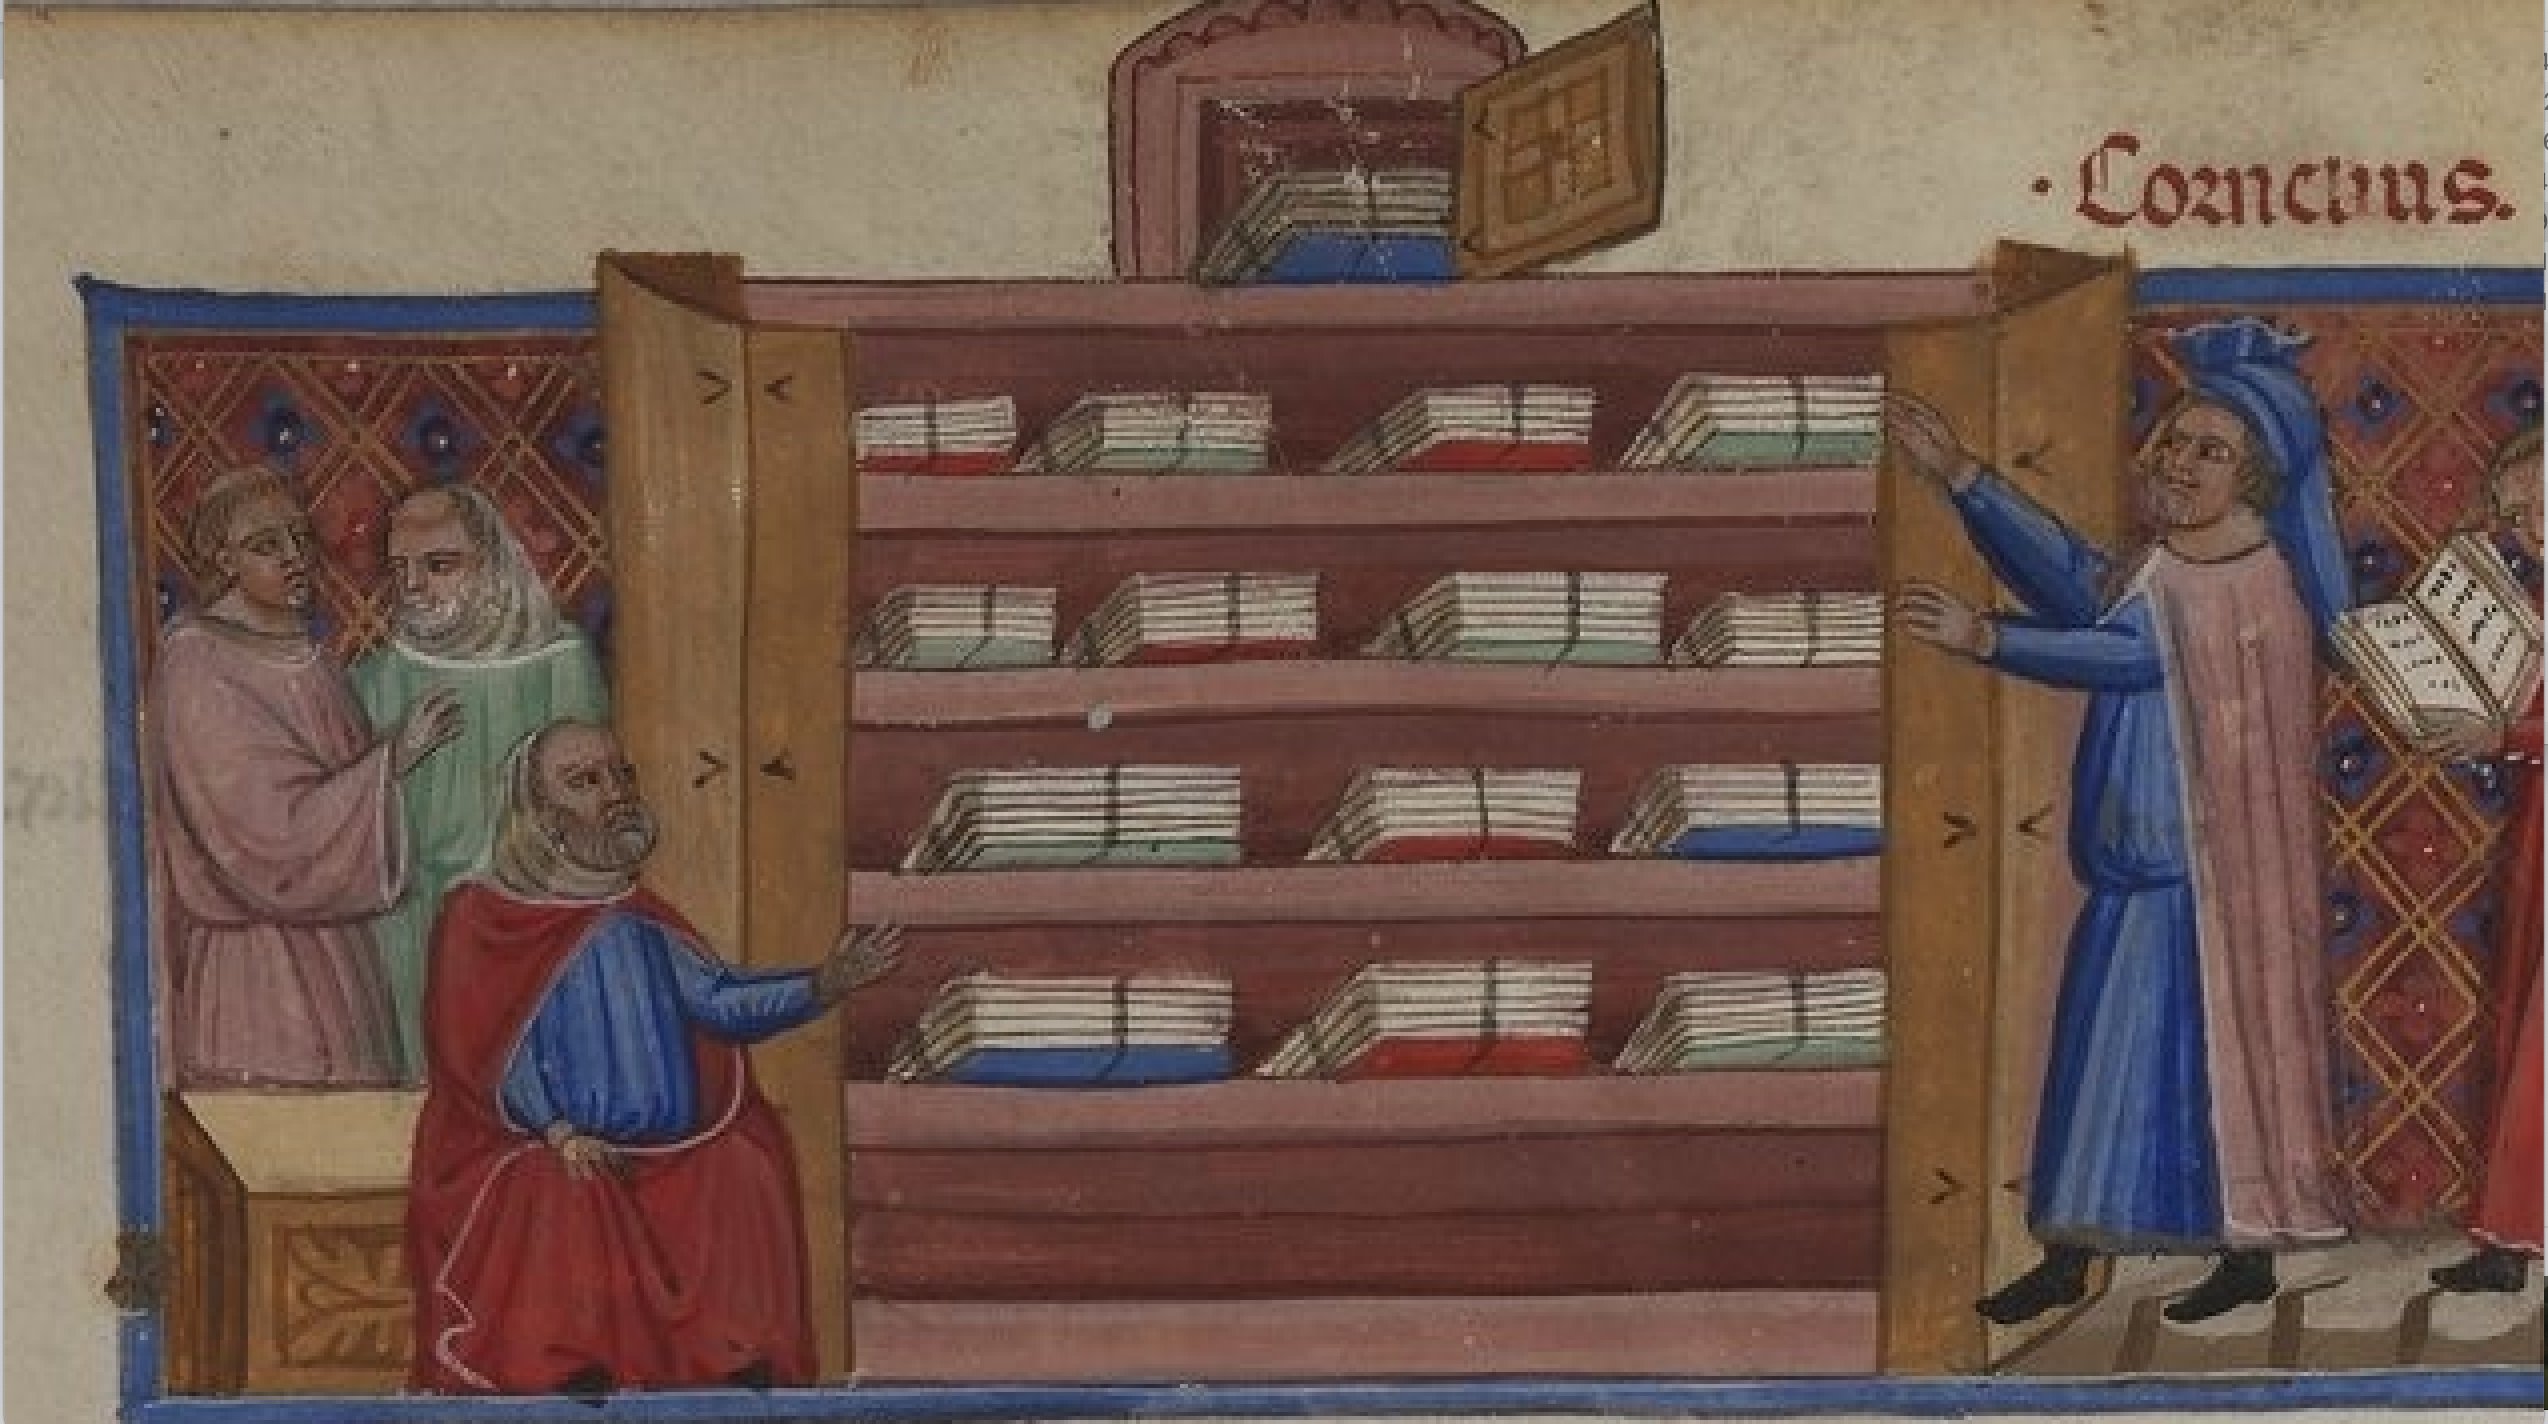 · Cornelius.